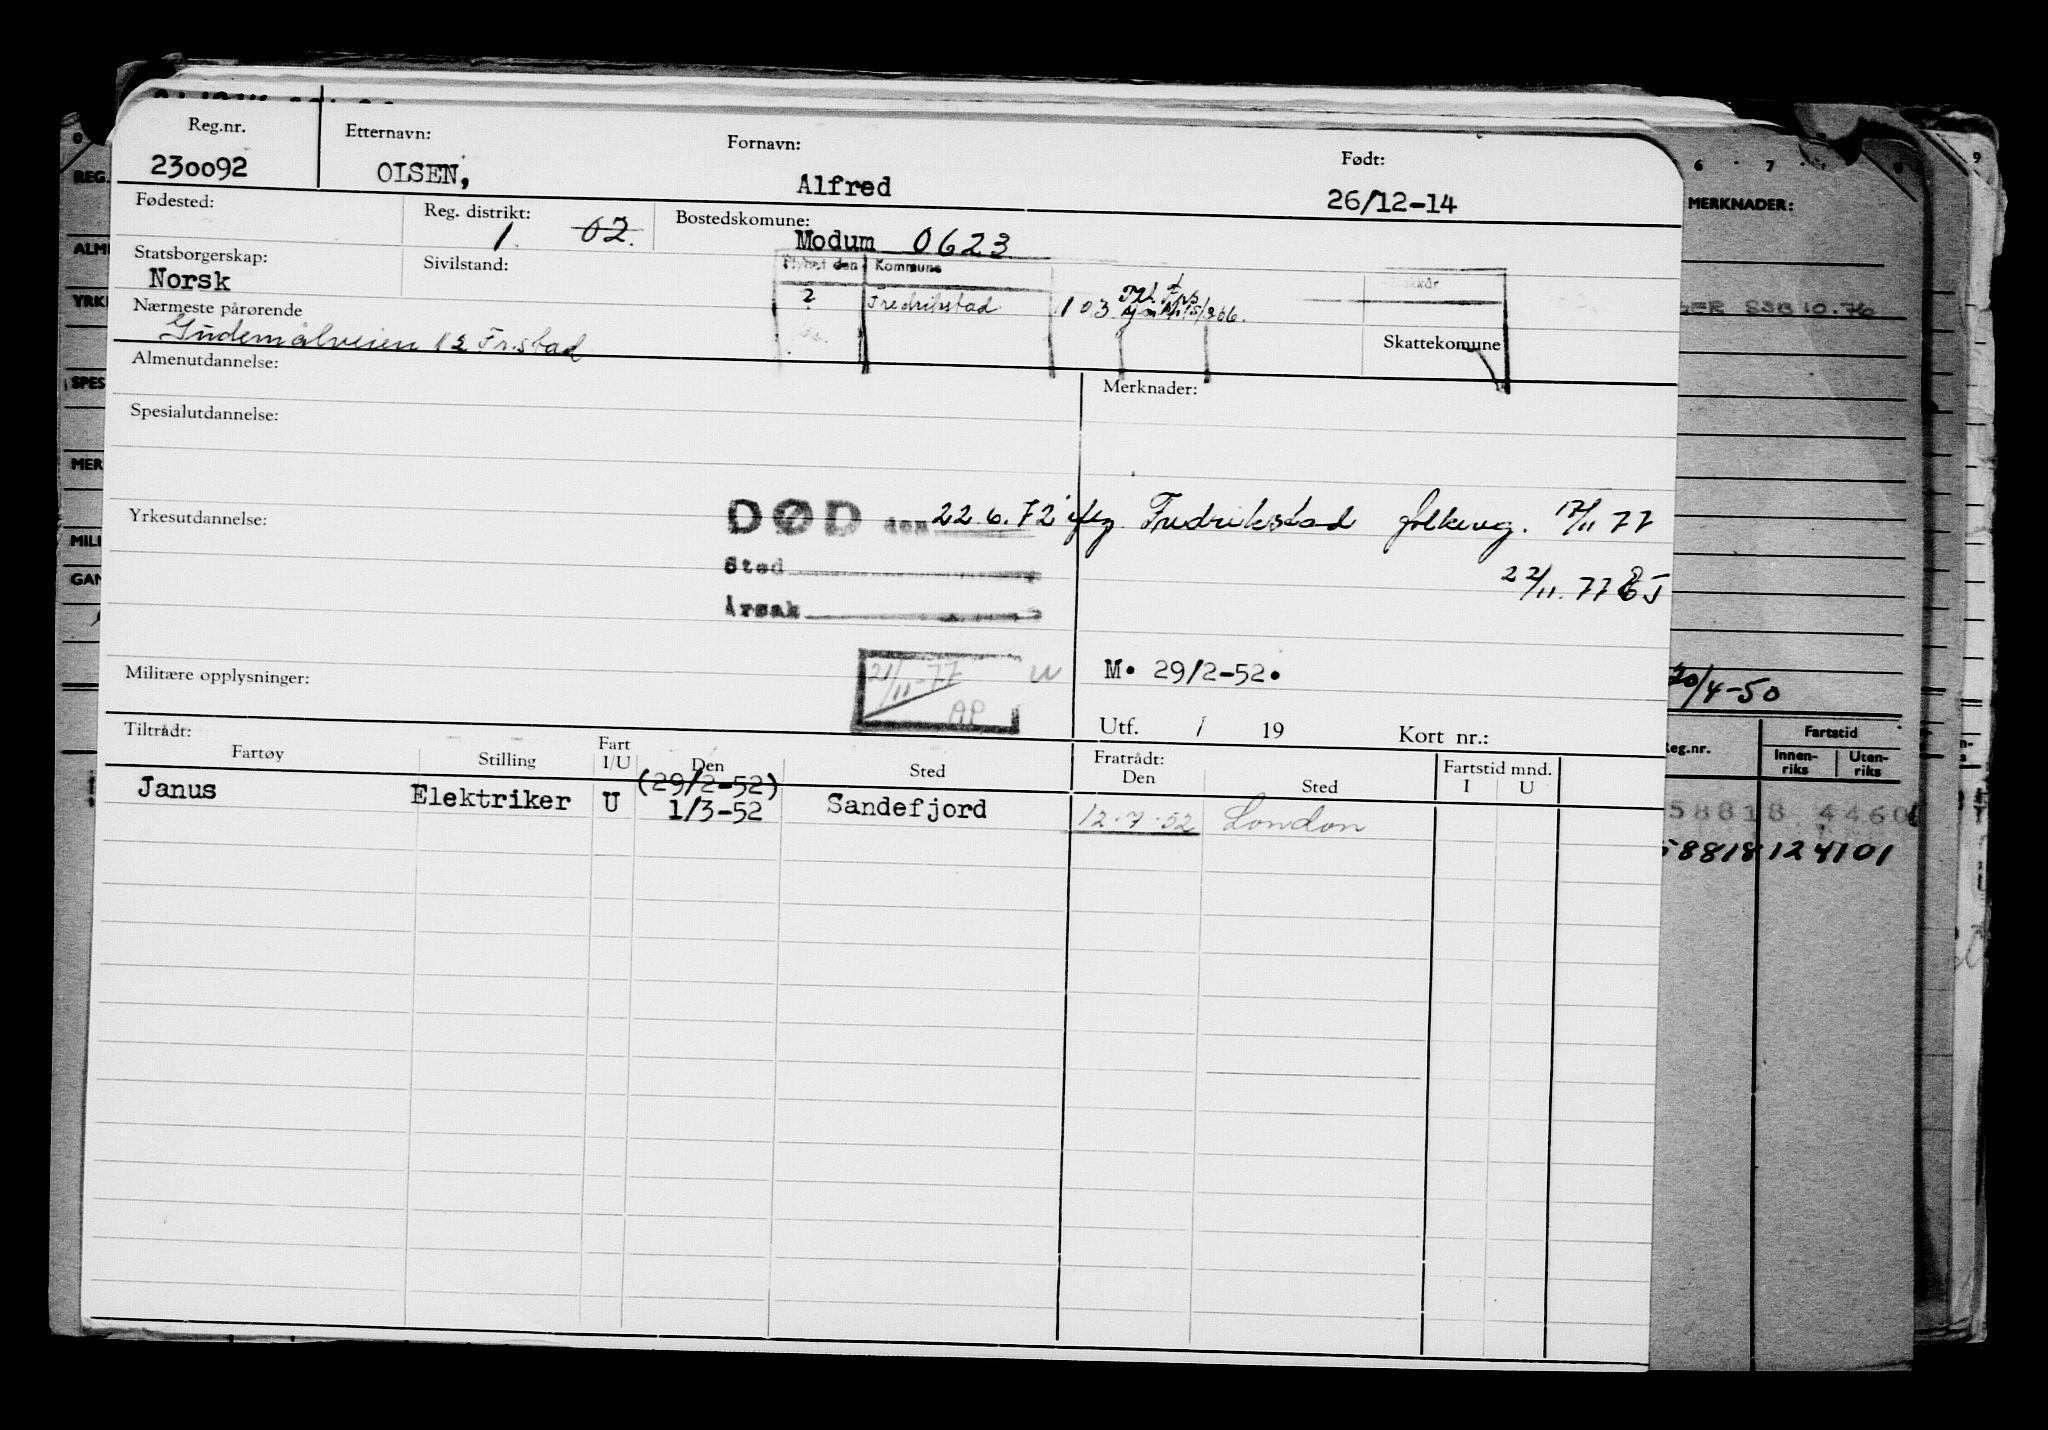 Reg.nr. Etternavn: Fornavn: Født:
230092 OLSEN, Alfred 26/12-14
Fødested: Reg. distrikt: Bostedskomune:
1. 02. Modum 0623
Statsborgerskap: Sivilstand: Flyttet den Kommune
Norsk
Nærmeste pårørende ? Fredrikstad 103
Gudemålveien 12 Fr.stad Skattekomune
Almenutdannelse: Merknader:
Spesialutdannelse:
Yrkesutdannelse: DØD den 22.6.72 iflg. Fredrikstad folkereg. 17/11 77
Sted 22/11.77
Årsak
Militære opplysninger: 21/11-77 AP M. 29/2-52.
Utf. / 19 Kort nr.:
Tiltrådt: Fratrådt:
Fartøy Stilling Fart I/U Den Sted Den Sted Fartstid mnd. I U
Janus Elektriker U (29/2-52) 1/3-52 Sandefjord 12.7.52 London
9
REG.
ALM
YRK
SPES
MER
MILI
GAN
6 7 8 9
MERKNADER:
S38 10.76
20/4-50
Reg.nr. Fartstid
Innen-riks Uten-riks
58818 4460
58818 124101